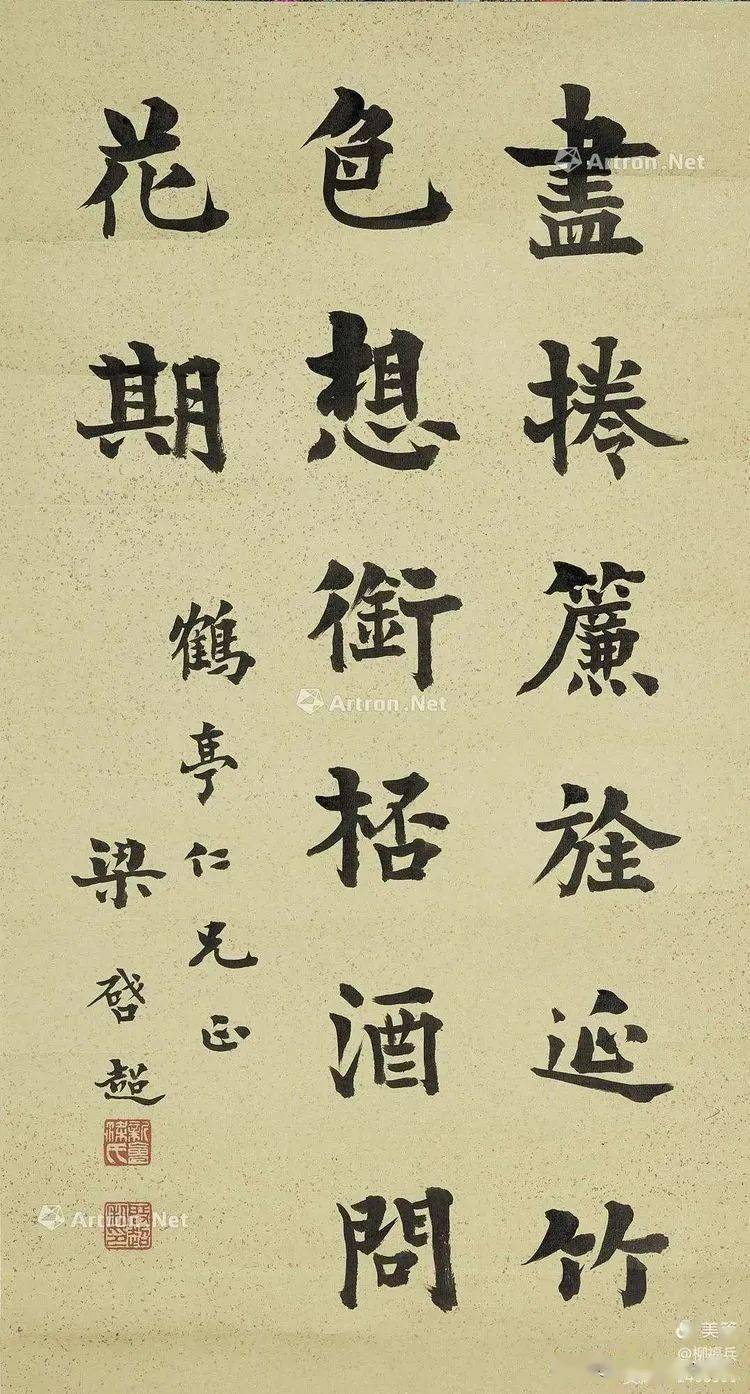 盡捲簾旌延竹
色想銜桮酒問
花期
鶴亭仁兄正
梁啓超
新會梁氏
Artron.Net
Artron.Net
Artron.Net
美篇